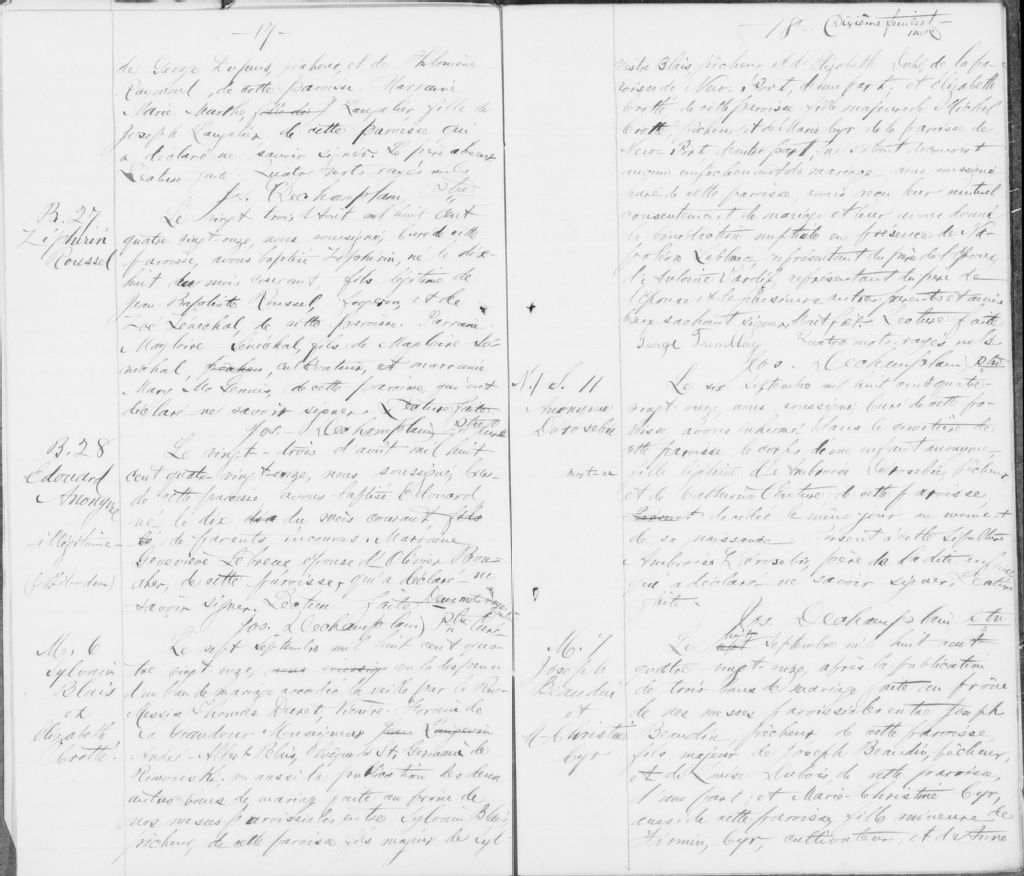 -17-
de George Dupuis, pêcheur, et de Philomène
Raymond, de cette paroisse. Marraine
Marie Marthe, Langelier, fille de
Joseph Langelier, de cette paroisse qui
a déclaré ne savoir signer. Le père absent
Lecture faite. Quatre mots rayés nuls
Jos. Dechamplain, Ptre
B. 27
Zéphirin
Roussel
Le vingt trois d'Août mil huit cent
quatre vingt-onze, nous soussigné, Curé de cette
paroisse, avons baptisé Zéphirin, né le dix-
huit du mois courant, fils légitime de
Jean-Baptiste Roussel, forgeron, et de
Zoé Sénéchal, de cette paroisse. Parrain
Magloire Sénéchal, fils de Magloire Sé-
néchal, cultivateur, et marraine
Marie de cette paroisse, qui ont
déclaré ne savoir signer. Lecture faite
Jos. Dechamplain Ptre Curé
B. 28
Edouard
Anonyme
illégitime
Le vingt-trois d'août mil huit
cent quatre vingt-onze, nous, soussigné, Curé
de cette paroisse avons baptisé Edouard
né le dix du mois courant, fils
de parents inconnus. Marraine
Geneviève Lebreux, épouse d'Olivier
de cette paroisse, qui a déclaré ne
savoir signer. Lecture faite. Deux mots rayés
Jos. Dechamplain, Ptre Curé
M. 6
Sylvain
Blais
et
Elizabeth
Crotte.
Le sept Septembre mil huit cent qua-
tre vingt onze, nous soussigné vu la dispense
d'un ban de mariage accordée la veille par le Rév.
Messire Thomas Vicaire-Forain de
Sa Grandeur Monseigneur Jean Langevin
André-Albert Blais, Evêque de St. Germain de
Rimouski; vu aussi la publication des deux
autres bans de mariage faite au prône de
nos messes paroissiales entre Sylvain Blais,
pêcheur, de cette paroisse fils majeur de Syl-
-18- Dixième feuillet
vestre Blais, pêcheur et d'Elizabeth Dubé de la pa-
roisse de New-Port, d'une part; et Elizabeth
Crotte de cette paroisse fille majeure de Michel
Crotte pêcheur, et de Marie Cyr, de la paroisse de
New-Port d'autre part; ne s'étant découvert
aucun empêchement de mariage, nous soussigné
curé de cette paroisse, avons reçu leur mutuel
consentement de mariage et leur avons donné
la bénédiction nuptiale en présence de Na-
poléon Leblanc, représentant du père de l'époux,
d'Antoine représentant du père de
l'épouse et de plusieurs autres parents et amis
sachant signer Lecture faite
George Tremblay Quatre mots rayés nuls
Jos. Dechamplain, Ptre
S. 11
Anonyme
Darosebie
mort-né
Le six Septembre mil huit cent quatre-
vingt onze, nous soussigné curé de cette pa-
roisse avons inhumé dans le cimetière de
cette paroisse le corps de enfant anonyme
légitime d'Ambroise Darosebie, pêcheur
et de Catherine Couture de cette paroisse
décédé le même jour au moment
de sa naissance. Présent à cette sépulture
Ambroise Darosebie, père de la dite enfant
qui a déclaré ne savoir signer. Lecture
faite.
Jos. Dechamplain Ptre
M. 7
Joseph
Beaudin
et
M-Christine
Cyr
huit
Le sept Septembre mil huit cent
quatre-vingt onze, après la publication
de trois bans de mariage faite au prône
de nos messes paroissiales entre Joseph
Beaudin, pêcheur de cette paroisse,
fils majeur de Joseph Beaudin, pêcheur,
et de Louise Dubois de cette paroisse,
d'une part; et Marie-Christine Cyr,
aussi de cette paroisse, fille mineure de
Firmin Cyr, cultivateur, et de Anne